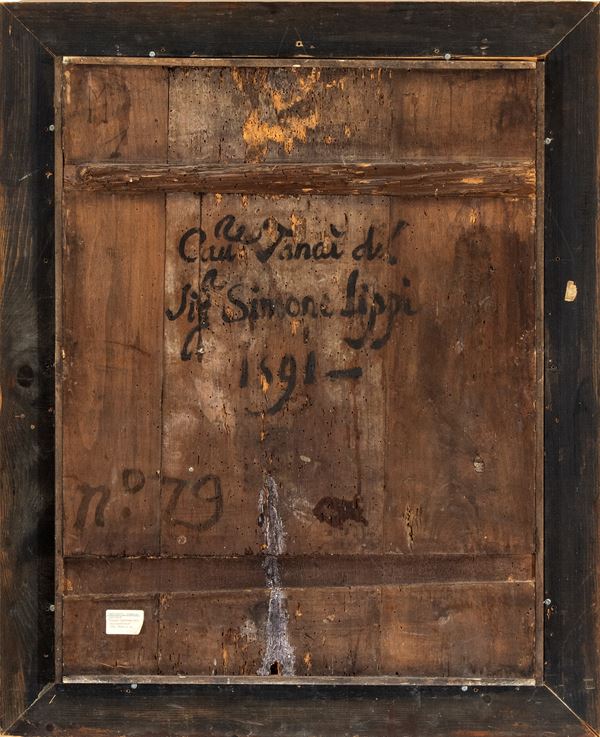 Cau^re Tanaì del
Sig^a Simone Lippi
1591 —
n.º 79